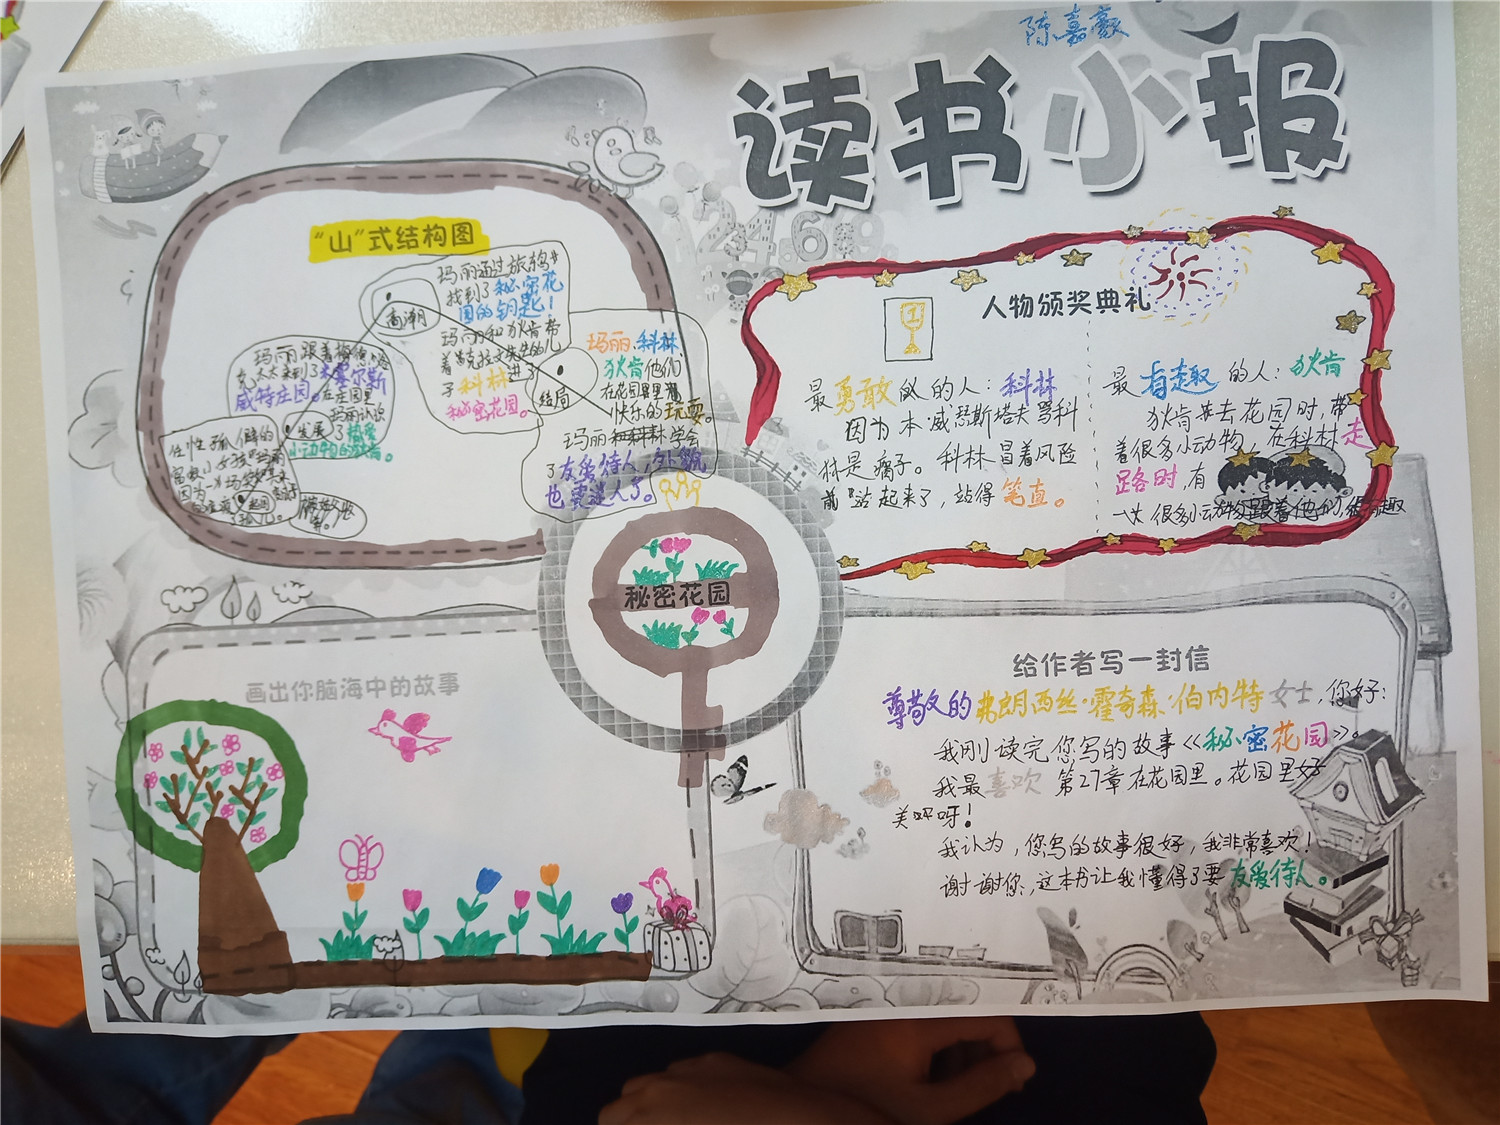 陈嘉豪
读书小报
“山”式结构图
玛丽通过旅鸫
找到了秘密花
园的钥匙!
高潮
玛丽和狄肯带
着克拉文先生的儿
子科林进了
秘密花园。
玛丽跟着梅德洛
克太太来到了米塞尔斯
威特庄园。在庄园里
玛丽认识
了热爱
小动物的狄肯。
发展
任性孤僻的
结局
玛丽、科林
狄肯他们
在花园里
快乐的玩耍。
玛丽和科林学会
了友爱待人,外貌
也更迷人了。
人物颁奖典礼
1
最勇敢的人:科林
因为本·威瑟斯塔夫骂科
林是瘸子。科林冒着风险
站起来了,站得笔直。
最有趣的人:狄肯
狄肯去花园时,带
着很多小动物,在科林走
路时,有
很多小动物跟着他们,很有趣
秘密花园
画出你脑海中的故事
给作者写一封信
尊敬的弗朗西丝·霍奇森·伯内特女士,你好:
我刚读完您写的故事《秘密花园》。
我最喜欢第27章在花园里。花园里好
美呀!
我认为,您写的故事很好,我非常喜欢!
谢谢你,这本书让我懂得了要友爱待人。